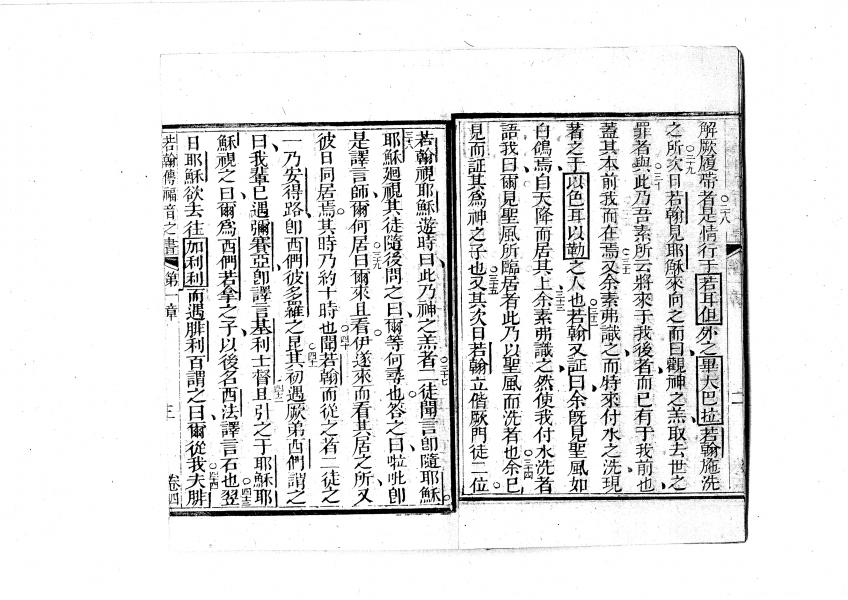 解厥履帶者是情行于若耳但外之畢大巴拉若翰施洗
二八
之所次日若翰見耶穌來向之而曰觀神之羔取去世之
二九
罪者與此乃吾素所云將來于我後者而已有于我前也
三十
蓋其本前我而在焉又余素弗識之而特來付水之洗現
三一
著之于以色耳以勒之人也若翰又証曰余旣見聖風如
三二
白鴿焉自天降而居其上余素弗識之然使我付水洗者
三三
語我曰爾見聖風所臨居者此乃以聖風而洗者也余已
三四
見而証其爲神之子也又其次日若翰立偕厥門徒二位
三五
二
若翰視耶穌遊時曰此乃神之羔者二徒聞言卽隨耶穌
三六
三七
耶穌廻視其徒隨後問之曰爾等何尋也答之曰㕸吡卽
三八
是譯言師爾何居曰爾來且看伊遂來而看其居之所又
三九
彼日同居焉其時乃約十時也聞若翰而從之者二徒之
四十
一乃安得路卽西們彼多羅之昆其初遇厥弟西們謂之
四一
曰我輩已遇彌賽亞卽譯言基利士督且引之于耶穌耶
四二
穌視之曰爾爲西們若拿之子以後名西法譯言石也翌
四三
日耶穌欲去往加利利而遇腓利百謂之曰爾從我夫腓
四四
若翰傳福音之書 第一章 三 卷四